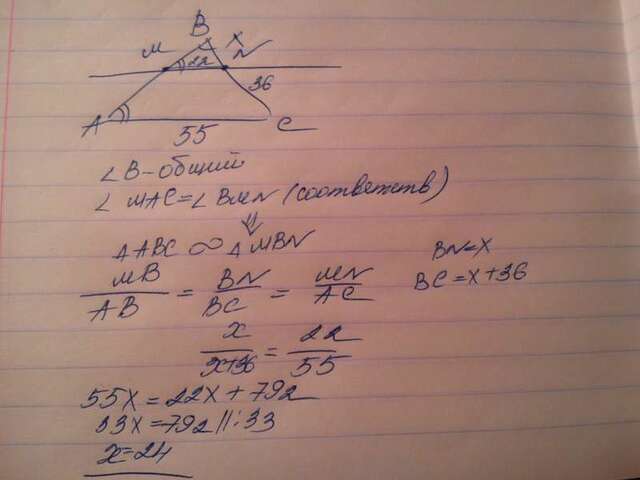 B
M
X
N
22
36
A
55
C
∠B-общий
∠MAC=∠BMN (соответств)
⇓
△ABC ∞ △MBN
BN=X
MB/AB = BN/BC = MN/AC
BC=X+36
x/x+36 = 22/55
55X=22X+792
33X=792 ||:33
x=24